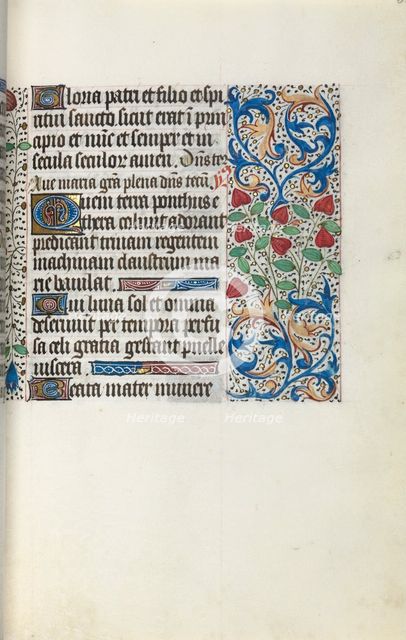 Gloria patri et filio et spi
ritui sancto sicut erat ī prin
cipio et nūc et semper et in
secula seculor amen. Dn̄s te
Aue maria gra plena dn̄s tecū
Quem terra ponthus e
thera colunt adorant
predicant trinam regentem
machinam claustrum ma
rie baiulat.
Cui luna sol et omnia
deseruiut per tempora perfu
sa celi gratia gestant puelle
uiscera.
Beata mater munere
Heritage
Heritage